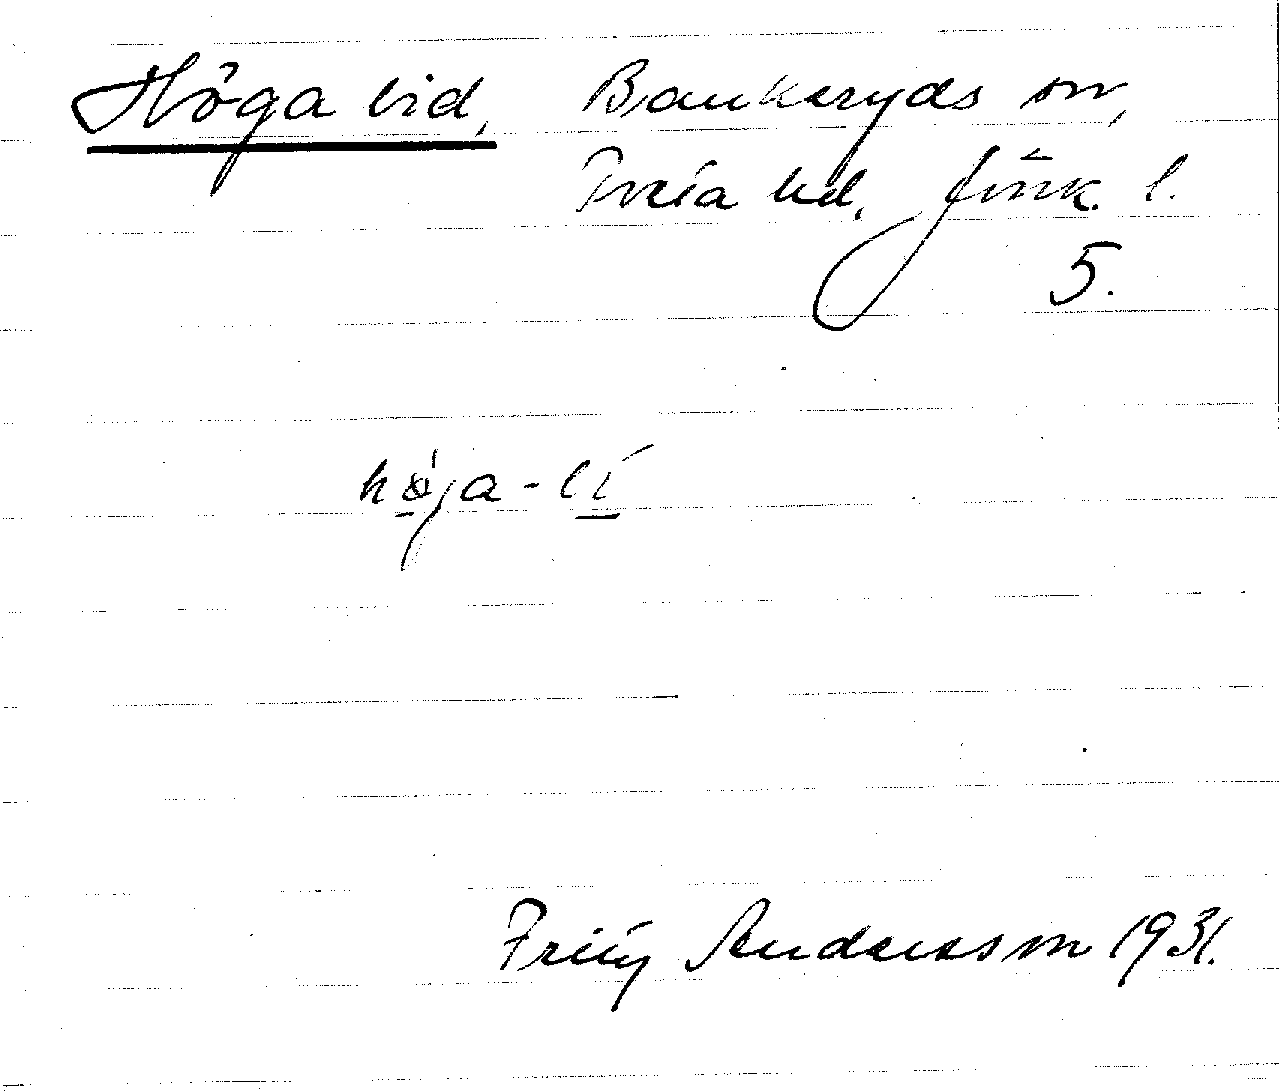 Höga lid, Bankeryds sn,
Tveta hd, Jönk. l.
5.
höja-lí
Fritz Andersson 1931.